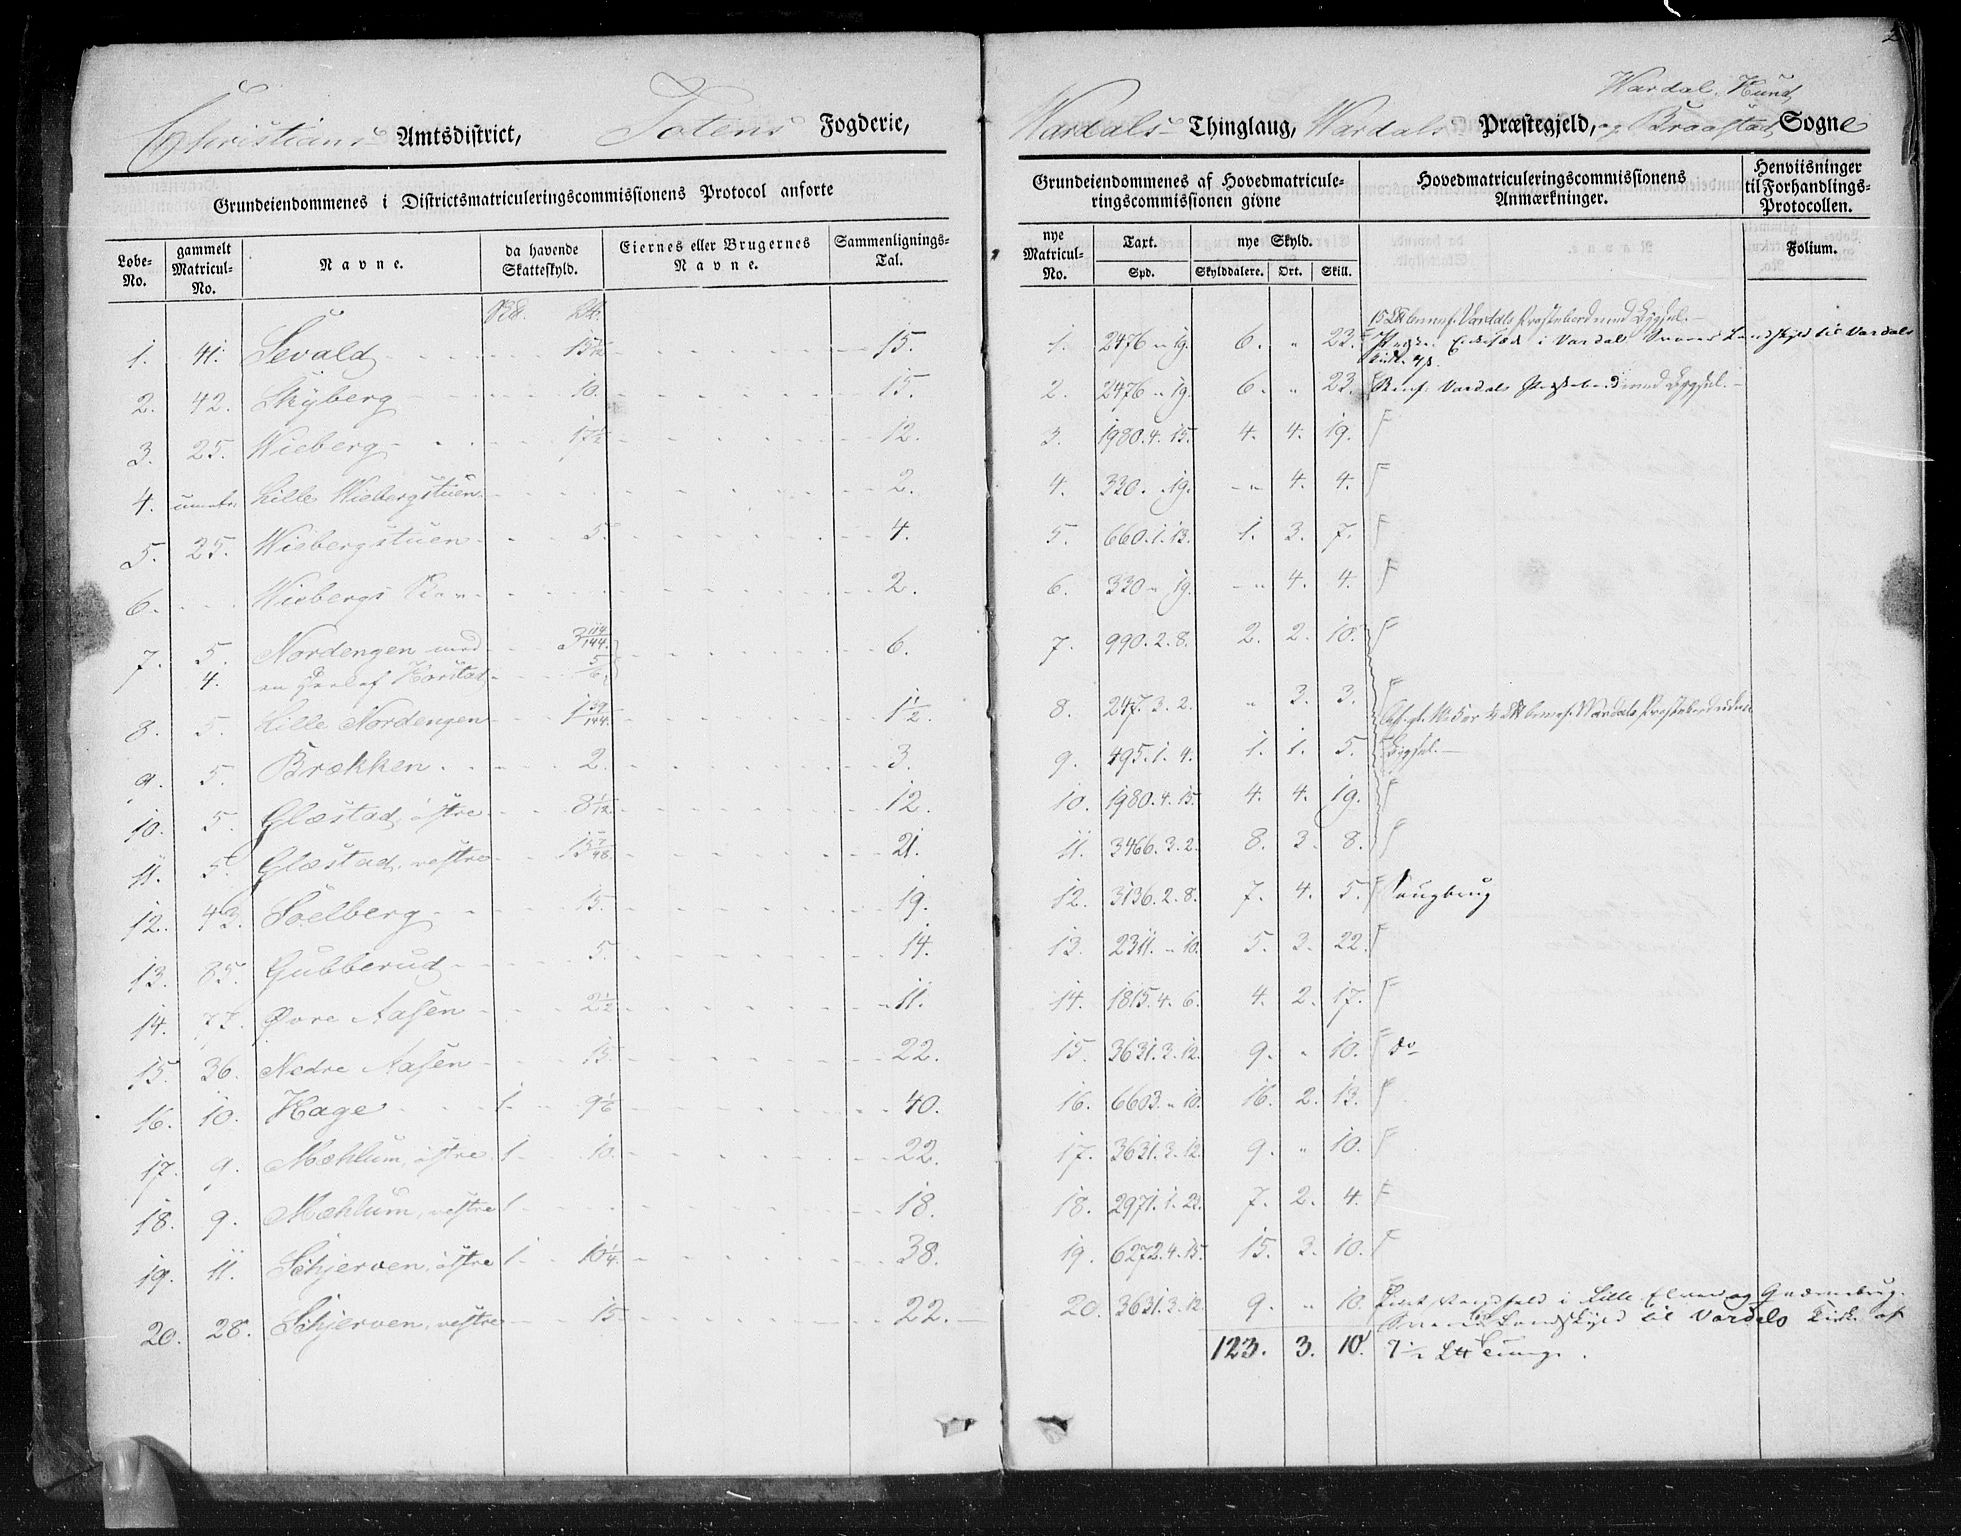 2
Christians Amtsdistrict, Totens Fogderie,
Grundeiendommenes i Districtsmatriculeringscommissionens Protocol anførte
Løbe-No. gammelt Matricul-No. Navne. da havende Skatteskyld. Eiernes eller Brugernes Navne. Sammenlignings-Tal.
1. 41. Sevald 15 1/2 15.
2. 42. Skyberg 10. 15.
3. 25. Wieberg 17 1/2 12.
4. Lille Wiebergstuen 2.
5. 25. Wiebergstuen 5. 4.
6. Wiebergs 2.
7. 5. Nordengen med 3 114/144 6.
4. en Deel af Korstad 5/6
8. 5. Lille Nordengen 1 39/144 1 1/2.
9. 5. Brækken 2. 3.
10. 5. Glæstad, østre 8 1/12 12.
11. 5. Glæstad, vestre 15 7/48 21.
12. 43. Soelberg 15. 19.
13. 85. Gubberud 5. 14.
14. 77. Øvre Aasen 2 1/2 11.
15. 36. Nedre Aasen 15 22.
16. 10. Hage 1. 9 1/6 40.
17. 9. Mæhlum, østre 1 10. 22.
18. 9. Mæhlum, vestre 1 18.
19. 11. Schjerven, østre 1 10 1/4 38.
20. 28. Schjerven, vestre 15. 22.
Wardal, Hund
Wardals Thinglaug, Wardals Præstegjeld, og Braastad Sogne
Grundeiendommenes af Hovedmatriculeringscommissionen givne
Hovedmatriculeringscommissionens Anmærkninger.
Henviisninger til Forhandlings-Protocollen.
nye Matricul-No. Taxt. Spd. nye Skyld. Skylddalere. Ort. Skill. Folium.
15 Vardals Præstebord med Bygsel.
1. 2476 " 19. 6. " 23. i Vardal Landskyld til Vardals
2. 2476 " 19. 6. " 23. Benef. Vardals Præstebord med Bygsel.
3. 1980. 4. 15. 4. 4. 19. F
4. 330. " 19. " 4. 4. F
5. 660. 1. 13. 1. 3. 7. F
6. 330 " 19. " 4. 4. F
7. 990. 2. 8. 2. 2. 10. F
8. 247. 3. 2. " 3. 3. F
Vardals Præstebord uden
9. 495. 1. 4. 1. 1. 5. Bygsel.
10. 1980. 4. 15. 4. 4. 19. F
11. 3466. 3. 2. 8. 3. 8. F
12. 3136. 2. 8. 7. 4. 5. F Saugbrug
13. 2311. " 10. 5. 3. 22. F
14. 1815. 4. 6. 4. 2. 17. F
15. 3631. 3. 12. 9. " 10. F do
16. 6603. " 10. 16. 2. 13. F
17. 3631. 3. 12. 9. " 10. F
18. 2971. 1. 22. 7. 2. 4. F
19. 6272. 4. 15. 15. 3. 10. F
20. 3631. 3. 12. 9. " 10. i Lille Elven og Qværnebrug.
Landskyld til Vardals Kirke af
123. 3. 10. 7 1/2